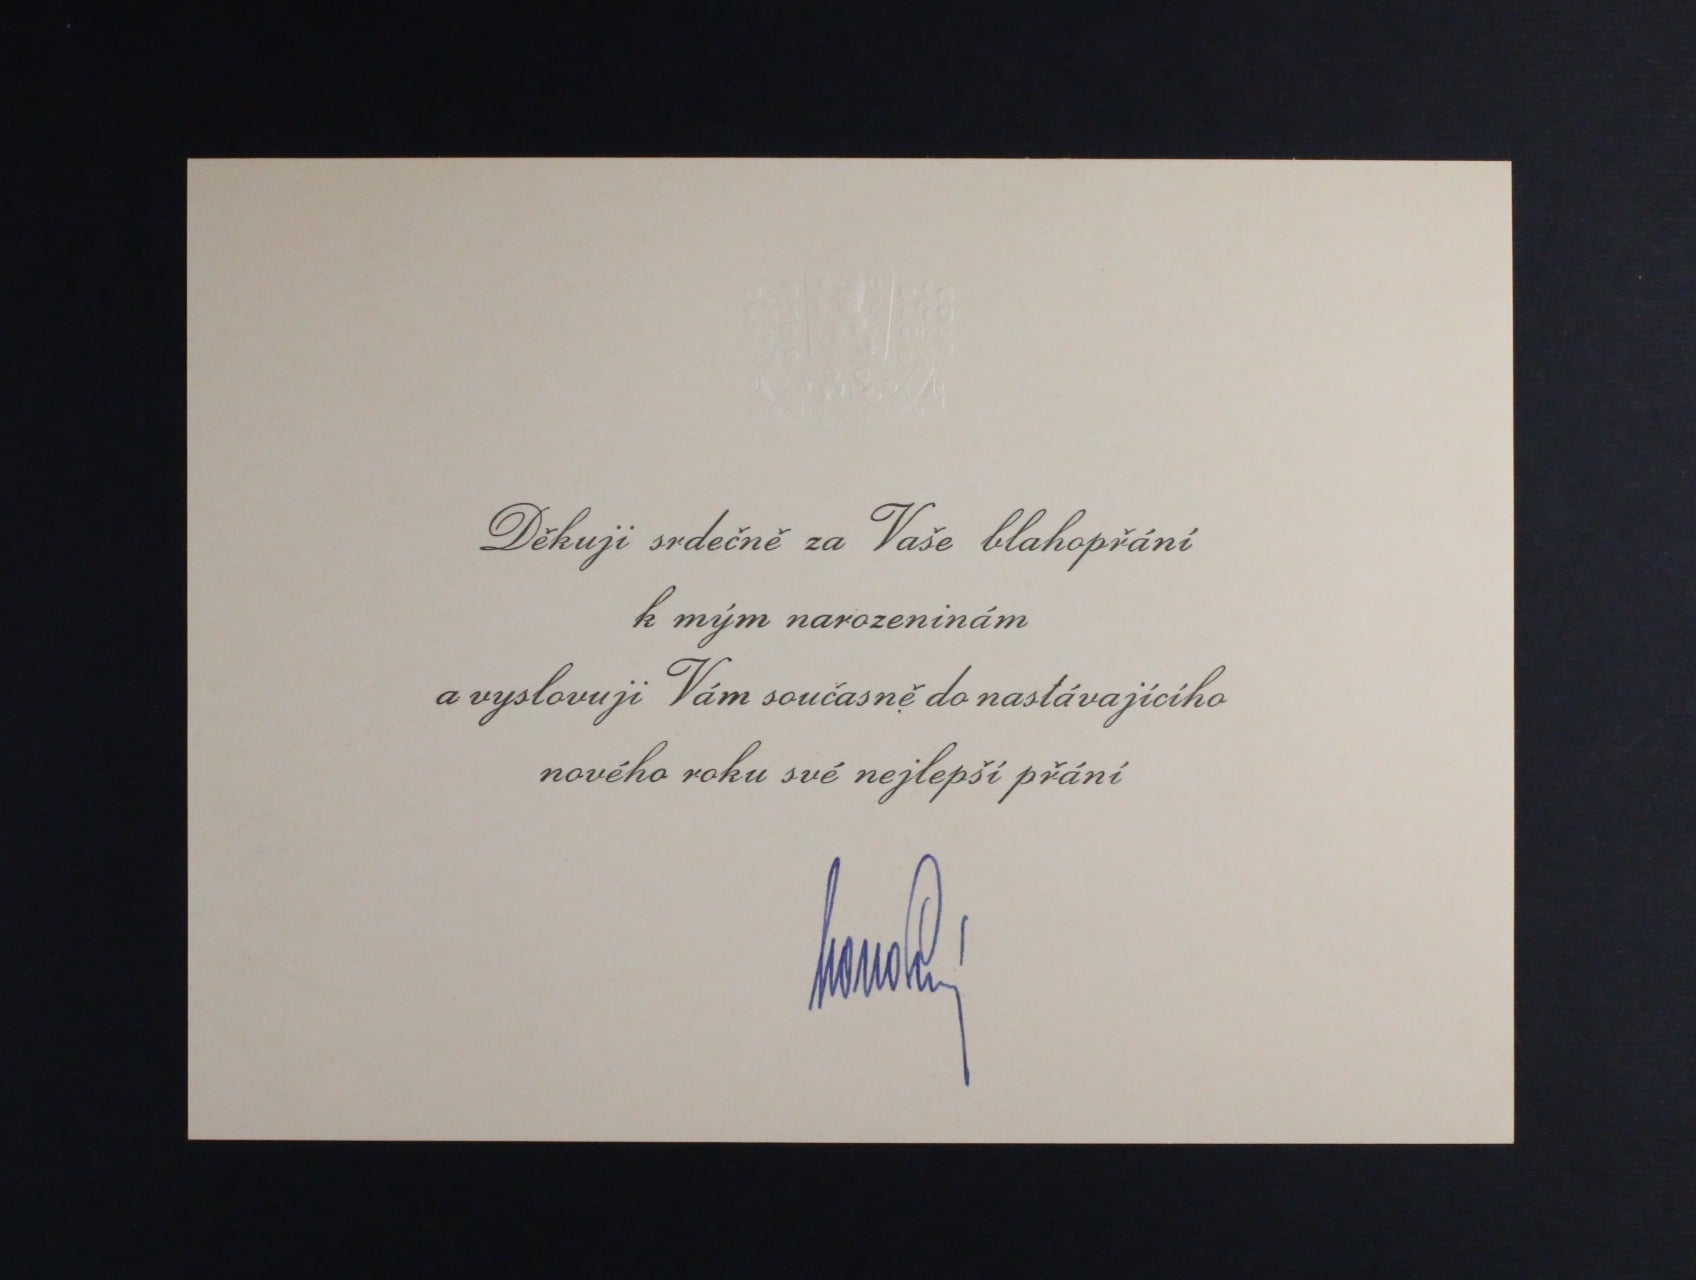 Děkuji srdečně za Vaše blahopřání
k mým narozeninám
a vyslovuji Vám současně do nastávajícího
nového roku své nejlepší přání